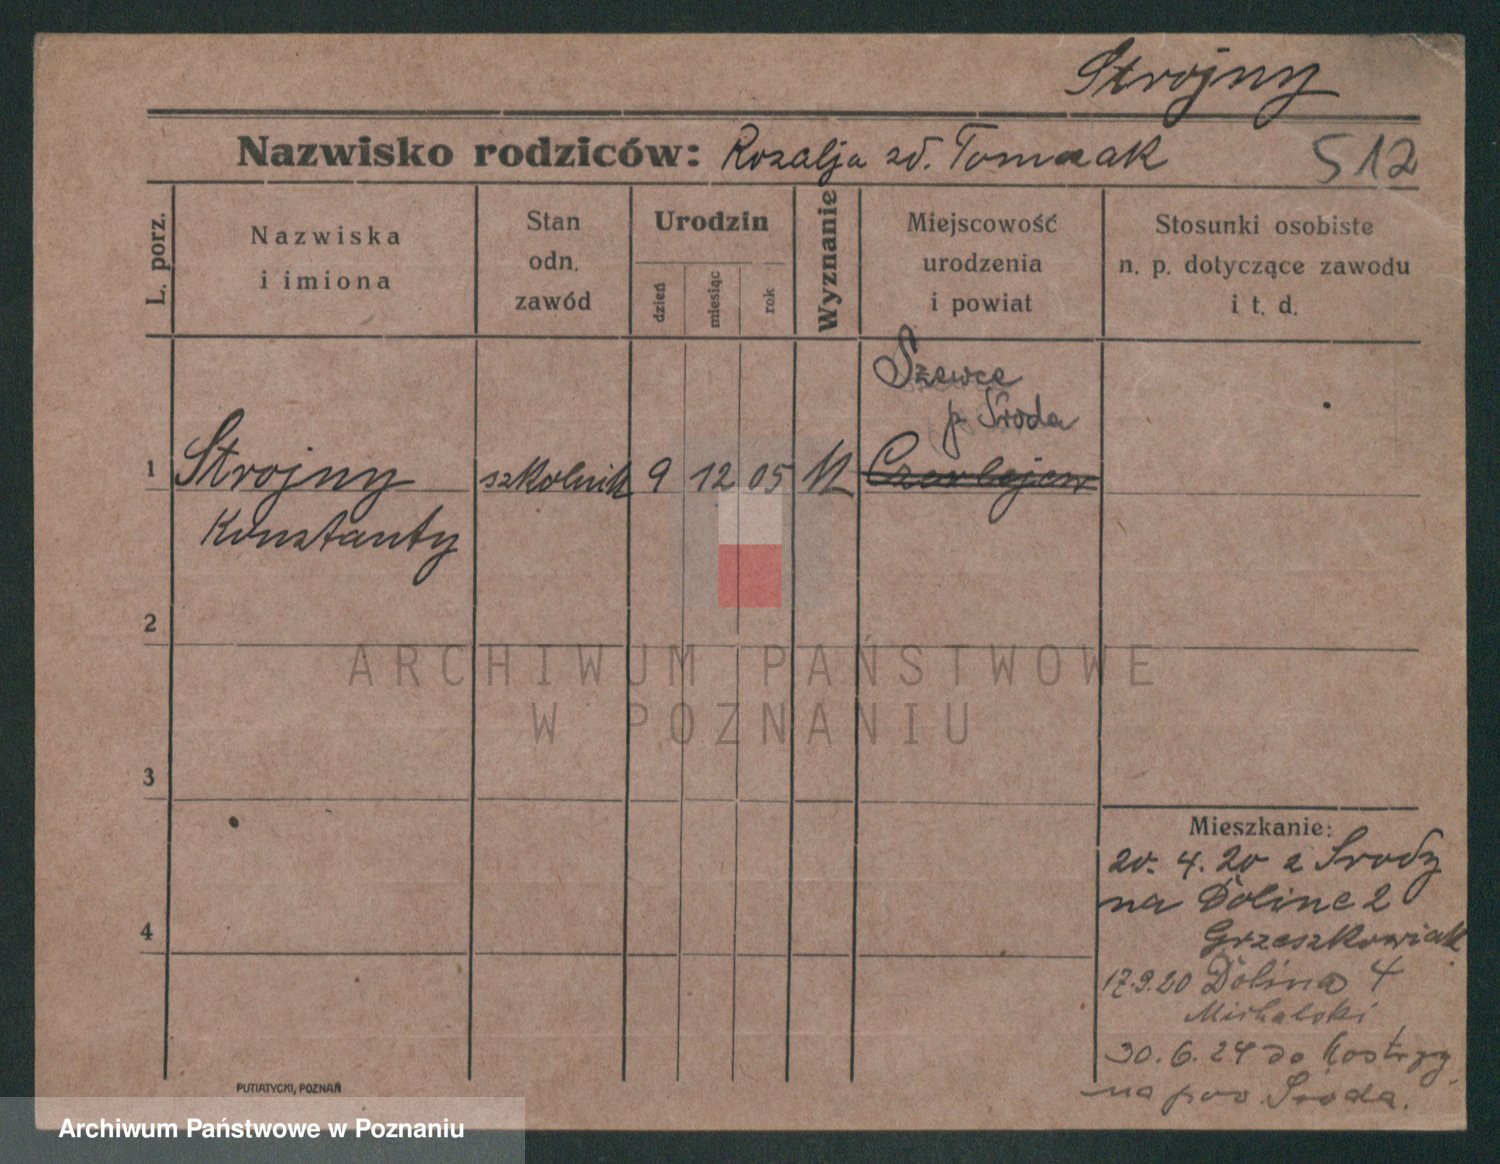 Strojny
Nazwisko rodziców: Rozalja zd. Tomczak
512
L. porz.
Nazwiska
i imiona
Stan
odn.
zawód
Urodzin
dzień
miesiąc
rok
Wyznanie
Miejscowość
urodzenia
i powiat
Stosunki osobiste
n. p. dotyczące zawodu
i t. d.
Szewce
p Środa
1 Strojny szkolnik 9 12 05 Czerlejew
Konstanty
2
ARCHIWUM PAŃSTWOWE
W POZNANIU
3
4
Mieszkanie:
20. 4. 20 z Środy
na Dolinę 2
Grzeszkowiak
17.9.20 Dolina 4
Michalski
30. 6. 24 do Kostrzy
na pow Środa.
PUTIATYCKI, POZNAŃ
Archiwum Państwowe w Poznaniu